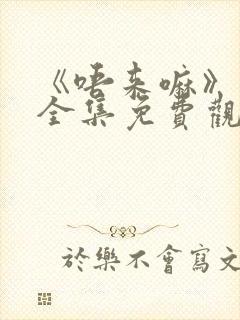 《唔来嘛》
全集免費觀
於樂不會寫文